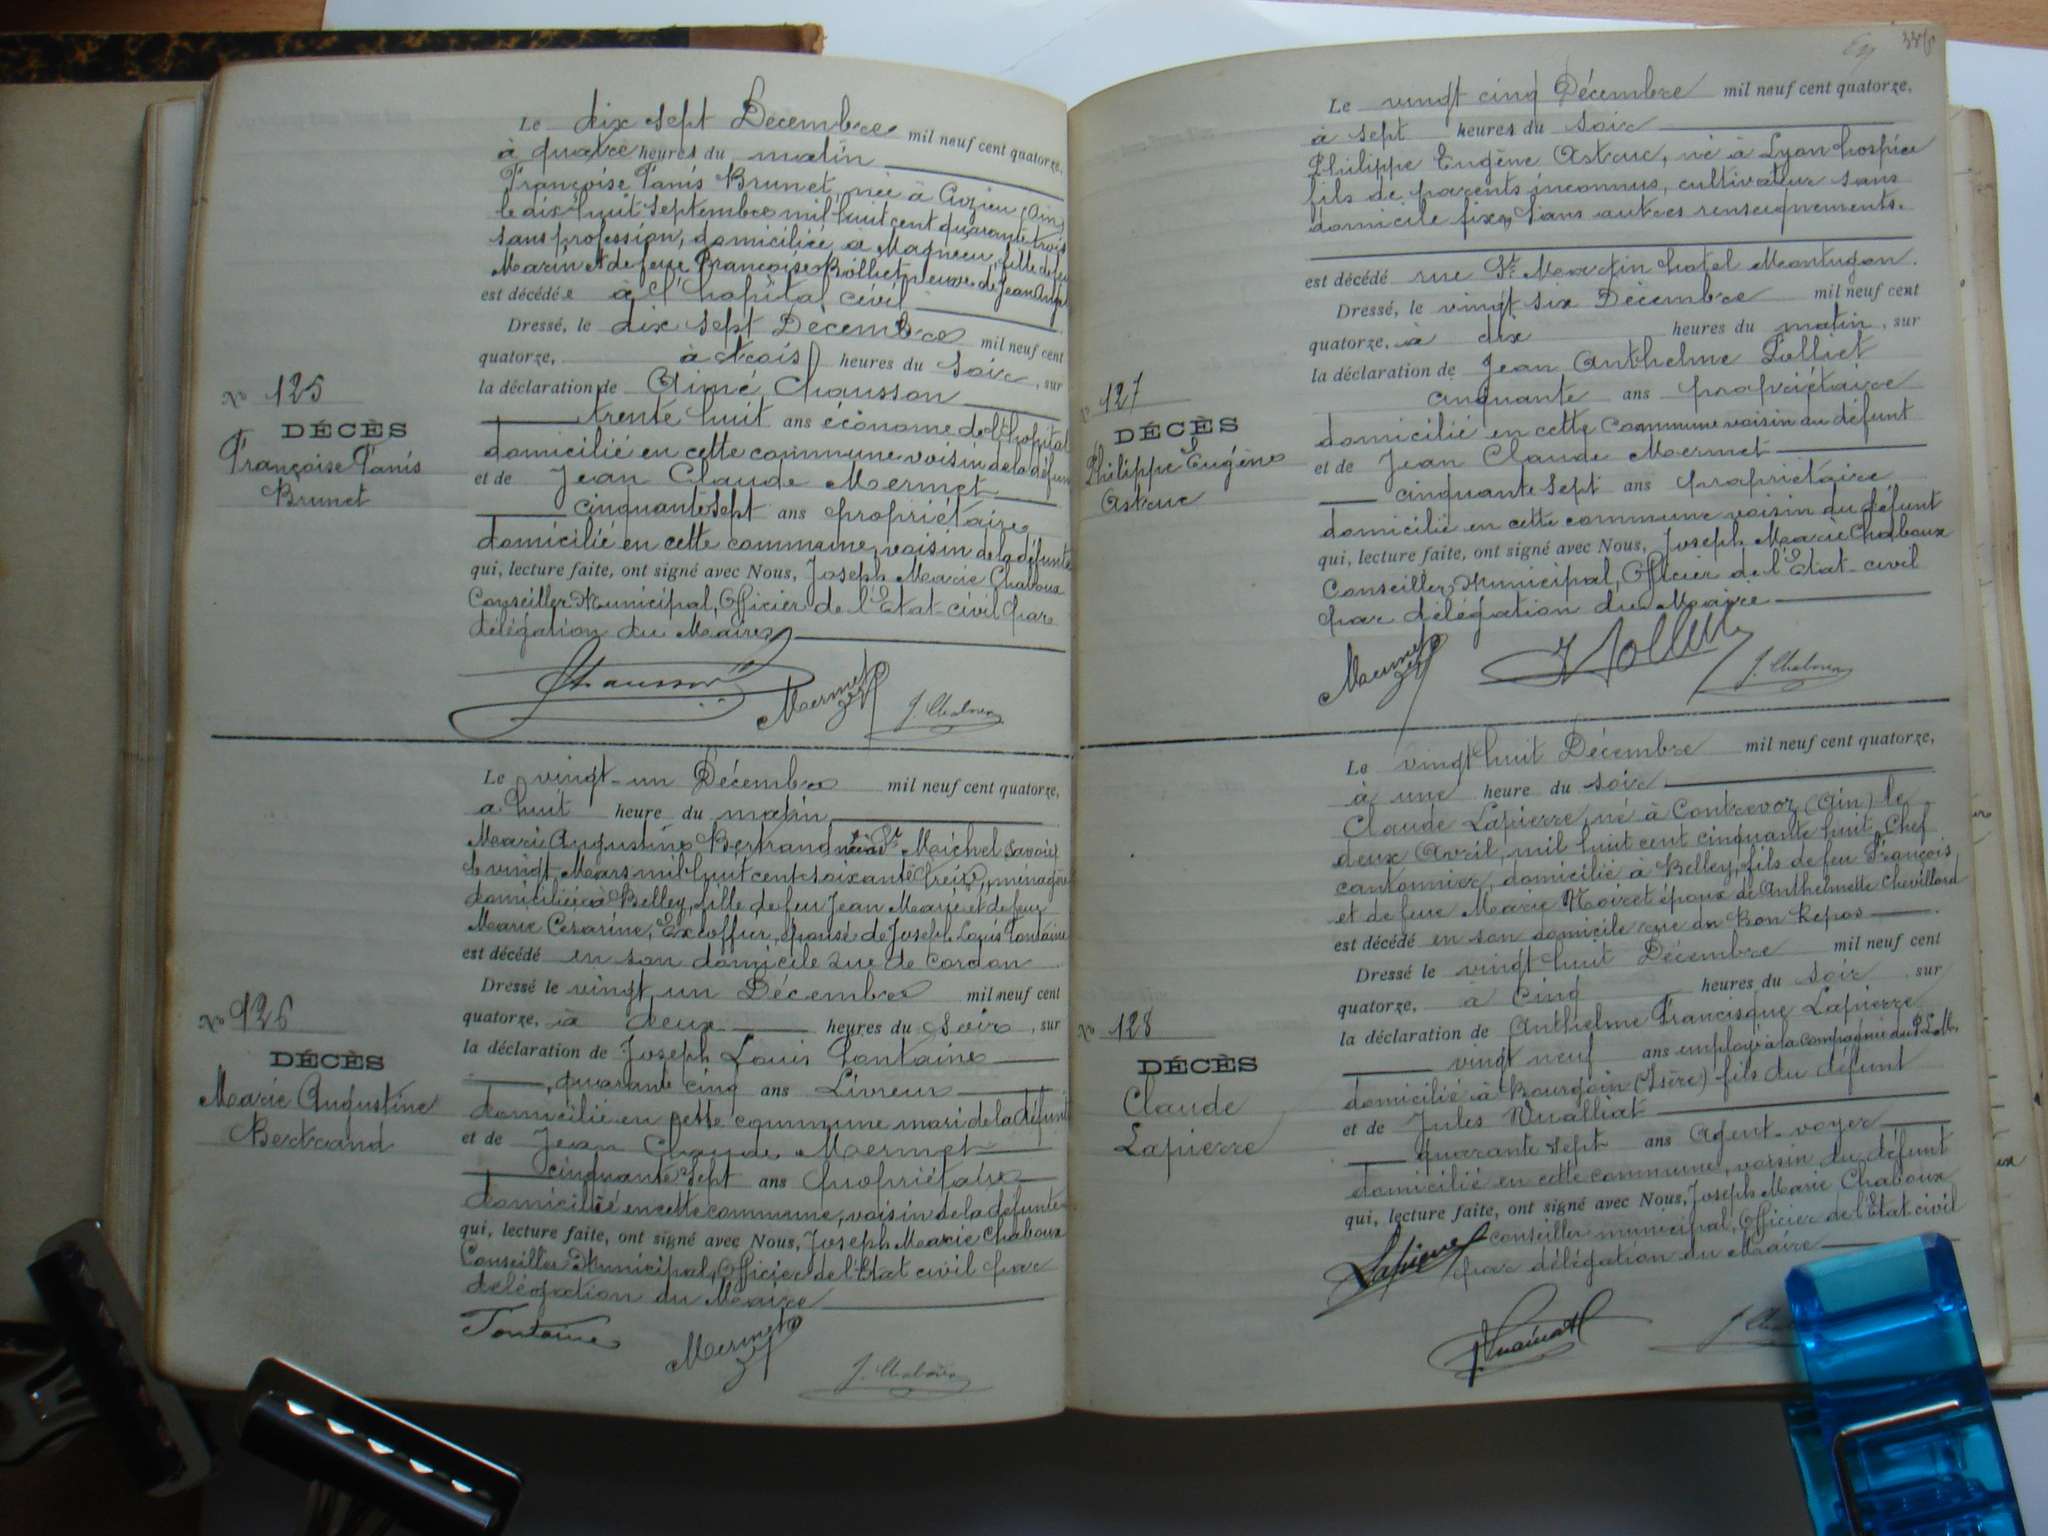 Le dix sept Décembre mil neuf cent quatorze,
à quatre heures du matin
Françoise Tanis Brunet, née à Cuzieu (Ain)
le dix huit Septembre mil huit cent quarante trois
sans profession, domiciliée à Magnieu, fille de feu
Marin et de feue Françoise Bolliet veuve de Jean
est décédée à l'hopital civil
Dressé, le dix sept Décembre mil neuf cent
quatorze, à trois heures du soir, sur
la déclaration de Aimé Chausson
trente huit ans économe de l'hopital
domicilié en cette commune voisin de la défunte
et de Jean Claude Mermet
cinquante sept ans propriétaire
domicilié en cette commune, voisin de la défunte
qui, lecture faite, ont signé avec Nous, Joseph Marie Chaboux
Conseiller Municipal, Officier de l'Etat-civil par
délégation du Maire
Chausson Mermet J. Chaboux
No 125
DÉCÈS
Françoise Tanis
Brunet
Le vingt-un Décembre mil neuf cent quatorze,
a huit heure du matin
Marie Augustine Bertrand née à St Michel Savoie
le vingt Mars mil huit cent soixante treize, ménagère
domiciliée à Belley, fille de feu Jean Marie et de feue
Marie Césarine Excoffier, épouse de Joseph Louis Fontaine
est décédé en son domicile rue de Cordon
Dressé le vingt un Décembre mil neuf cent
quatorze, à deux heures du soir, sur
la déclaration de Joseph Louis Fontaine
, quarante cinq ans Livreur
domicilié en cette commune mari de la défunte
et de Jean Claude Mermet
cinquante sept ans propriétaire
domicilié en cette commune, voisin de la défunte
qui, lecture faite, ont signé avec Nous, Joseph Marie Chaboux
Conseiller Municipal, Officier de l'Etat civil par
délégation du Maire
Fontaine Mermet J. Chaboux
No 126
DÉCÈS
Marie Augustine
Bertrand
336
Le vingt cinq Décembre mil neuf cent quatorze,
à sept heures du soir
Philippe Eugène Astruc, né à Lyon hospice
fils de parents inconnus, cultivateur sans
domicile fixe, sans autres renseignements.
est décédé rue St Martin hotel Montugon.
Dressé, le vingt six Décembre mil neuf cent
quatorze, à dix heures du matin, sur
la déclaration de Jean Anthelme Tolliet
cinquante ans propriétaire
domicilié en cette commune voisin du défunt
et de Jean Claude Mermet
cinquante sept ans propriétaire
domicilié en cette commune voisin du défunt
qui, lecture faite, ont signé avec Nous, Joseph Marie Chaboux
Conseiller Municipal, Officier de l'Etat-civil
par délégation du Maire
Mermet J Tolliet J. Chaboux
No 127
DÉCÈS
Philippe Eugène
Astruc
Le vingt huit Décembre mil neuf cent quatorze,
à une heure du soir
Claude Lapierre, né à Contrevoz (Ain) le
deux Avril, mil huit cent cinquante huit, Chef
cantonnier, domicilié à Belley, fils de feu François
et de feue Marie Moiret époux de Anthelmette Chevillard
est décédé en son domicile rue du Bon Repos
Dressé le vingt huit Décembre mil neuf cent
quatorze, à cinq heures du soir, sur
la déclaration de Anthelme Francisque Lapierre
vingt neuf ans employé à la compagnie du P.L.M.
domicilié à Bourgoin (Isère) fils du défunt
et de Jules
quarante sept ans Agent-voyer
domicilié en cette commune, voisin du défunt
qui, lecture faite, ont signé avec Nous, Joseph Marie Chaboux
Conseiller municipal, Officier de l'Etat civil
par délégation du Maire
Lapierre
J. Cha
No 128
DÉCÈS
Claude
Lapierre